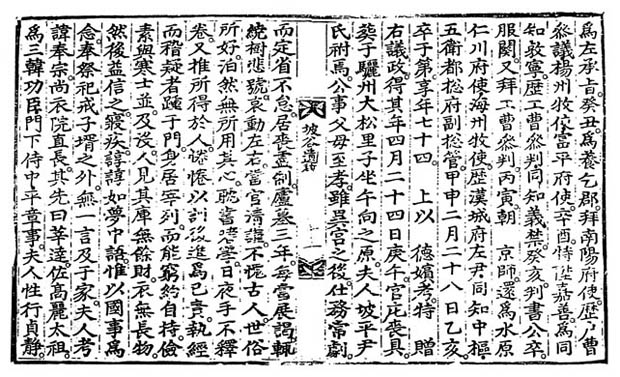 爲左承旨。癸丑。爲養乞郡。拜南陽府使。歷戶曹
叅議。楊州牧使。富平府使。辛酉。特陞嘉善。爲同
知敦寧。歷工曹叅判。同知義禁。癸亥。判書公卒。
服闋。又拜工曹叅判。丙寅。朝　京師。還爲水原
仁川府使。海州牧使。歷漢城府左尹。同知中樞
五衛都摠府副摠管。甲申二月二十八日乙亥
卒于第。享年七十四。　上以　德嬪考。特　贈
右議政。得其年四月二十四日庚午。官庀喪具。
葬于驪州大松里子坐午向之原。夫人坡平尹
氏祔焉。公事父母至孝。雖異宮之後。仕務常劇。
坡谷遺稿
而定省不怠。居喪盡制。廬墓三年。每當展謁。輒
繞樹悲號。哀動左右。當官淸謹。不愧古人。世俗
所好。泊然無所用其心。聰書學。日夜手不釋
卷。又推所得於人。惓惓以訓後進爲己責。執經
而稽疑者踵于門。身居宰列。而能窮約自持。儉
素與寒士並。及沒。人見其庫無餘財。衣無長物。
然後益信之。寢疾諄諄如夢中語。惟以國事爲
念。奉祭祀戒子壻之外。無一言及于家。夫人考
諱奉宗。尙衣院直長。其先曰莘達。佐高麗太祖。
爲三韓功臣。門下侍中平章事。夫人性行貞靜。